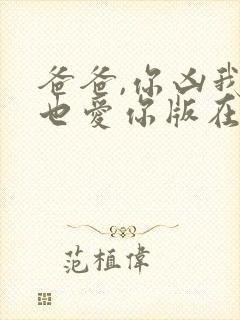 爸爸,你凶我
也爱你版在
范植偉